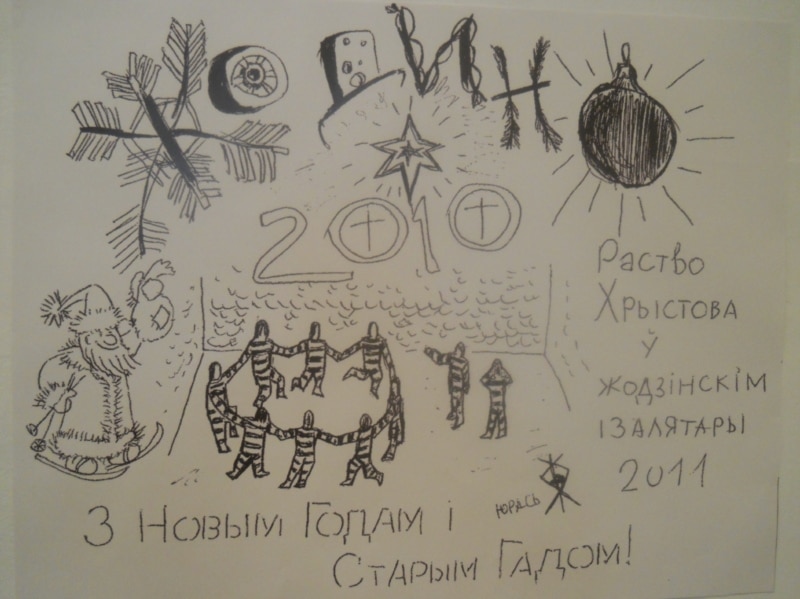 ЖОДИНО
2010
Раство
Хрыстова
ў
жодзінскім
ізалятары
2011
Юрась
З Новым Годам і
Старым Гадом!